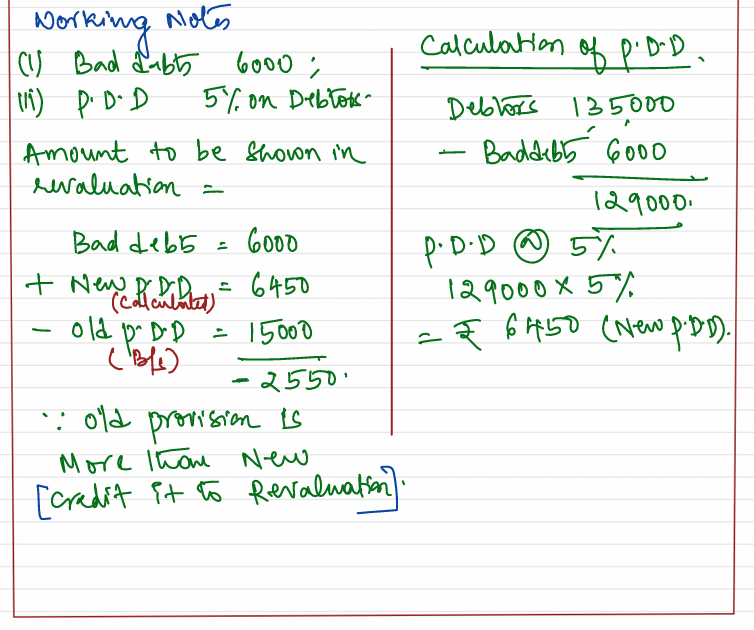 Working Notes
(i) Bad debts 6000 ;
(ii) P.D.D 5% on Debtors-
Amount to be shown in
revaluation =
Bad debts = 6000
+ New P.D.D = 6450
(Calculated)
- old P.D.D = 15000
(B/s)
- 2550.
∵ old provision is
More than New
[Credit it to Revaluation].
Calculation of P.D.D.
Debtors 135000
- Baddebts 6000
129000.
P.D.D @ 5%
129000 x 5%
= ₹ 6450 (New P.D.D).